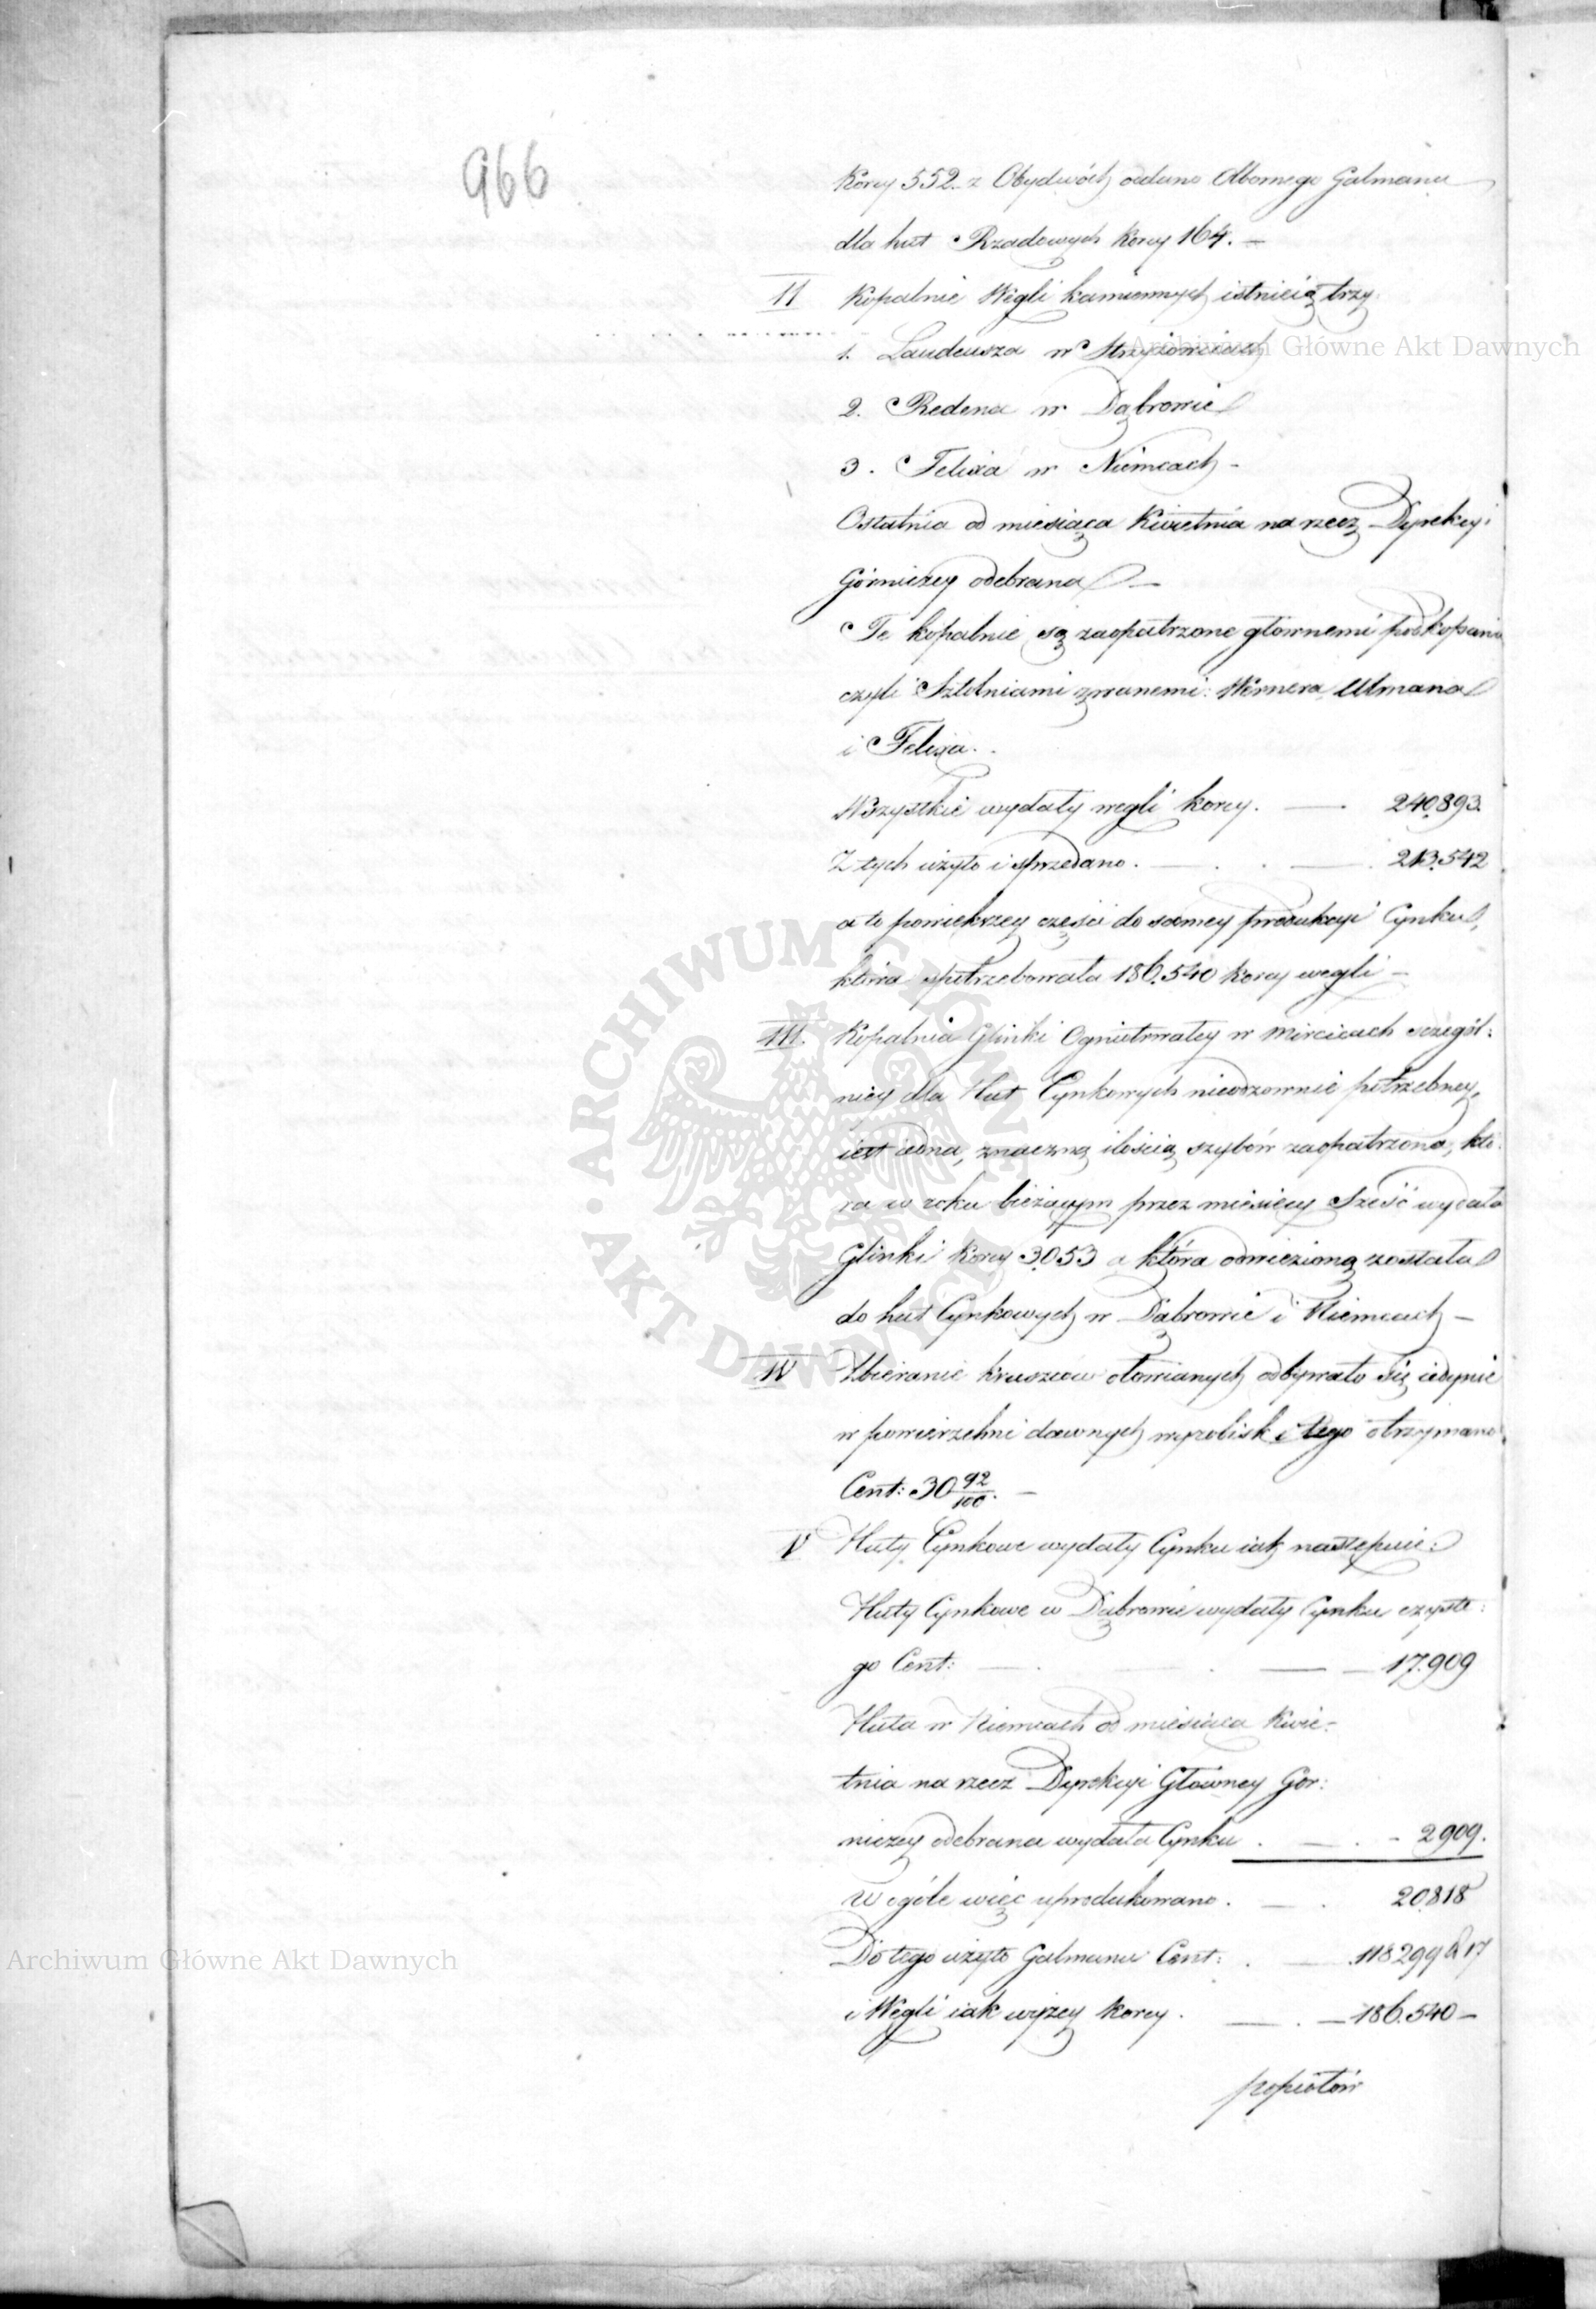 966
Korcy 552. z Obydwóch oddano Albornego Galmanu
dla hut Rządowych Korcy 164. —
II Kopalnie Węgli kamiennych istnieią trzy.
1. Taudeusza w Strzyżowicach
Archiwum Główne Akt Dawnych
2. Redena w Dąbrowie
3. Felixa w Niemcach —
Ostatnia od miesiąca Kwietnia na rzecz Dyrekcyi
Górniczey odebrana —
Te kopalnie są zaopatrzone głownemi podkopami
czyli Sztolniami zwanemi: Wernera, Ulmana
i Felixa.
Wszystkie wydały węgli korcy. — 240.893.
Z tych użyto i sprzedano. — . — 213.542
a to powiekrzey części do samey produkcyi Cynku,
która spotrzebowała 186.540 korcy węgli —
III. Kopalnia Glinki Ogniotrwałey w Mirzcicach szczegól:
niey dla Hut Cynkowych nieodzownie potrzebney,
iest iedna, znaczną ilością szybów zaopatrzona, któ:
ra w roku bieżącym przez miesięcy Sześć wydała
Glinki Korcy 3053 a która odwiezioną została
do hut Cynkowych w Dąbrowie i Niemcach —
IV Zbieranie kruszców ołowianych odbywało się iedynie
w powierzchni dawnych wyrobisk i tego otrzymano
Cent: 30 92/100. —
V Huty Cynkowe wydały Cynku iak następuie:
Huty Cynkowe w Dąbrowie wydały Cynku czyste:
go Cent: — . — 17.909
Huta w Niemcach od miesiąca Kwie:
tnia na rzecz Dyrekcyi Główney Gór:
niczey odebrana wydała Cynku . — . - 2909.
W ogóle więc uprodukowano . — . 20.818
Archiwum Główne Akt Dawnych
Do tego użyto Galmanu Cent: . — 118.299 17
i Węgli iak wyżey Korcy . — . — 186.540 —
popiołów
ARCHIWUM GŁÓWNE AKT DAWNYCH